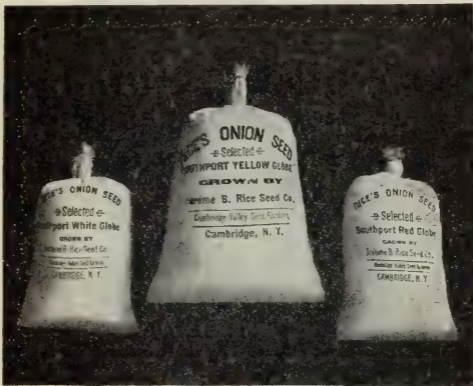 RICE'S ONION SEED
Selected
Southport White Globe
GROWN BY
Jerome B. Rice Seed Co.
Cambridge Valley Seed Gardens
CAMBRIDGE, N. Y.
RICE'S ONION SEED
Selected
SOUTHPORT YELLOW GLOBE
GROWN BY
Jerome B. Rice Seed Co.
Cambridge Valley Seed Gardens
Cambridge, N. Y.
RICE'S ONION SEED
Selected
Southport Red Globe
GROWN BY
Jerome B. Rice Seed Co.
Cambridge Valley Seed Gardens
CAMBRIDGE, N.Y.